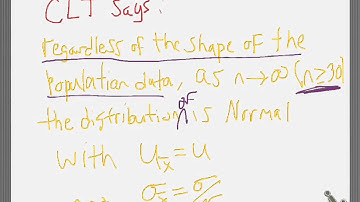 CLT says:
regardless of the shape of the
population data, as n→∞ (n≥30)
the distribution of is Normal
with U_x̄ = U
σ_x̄ = σ/